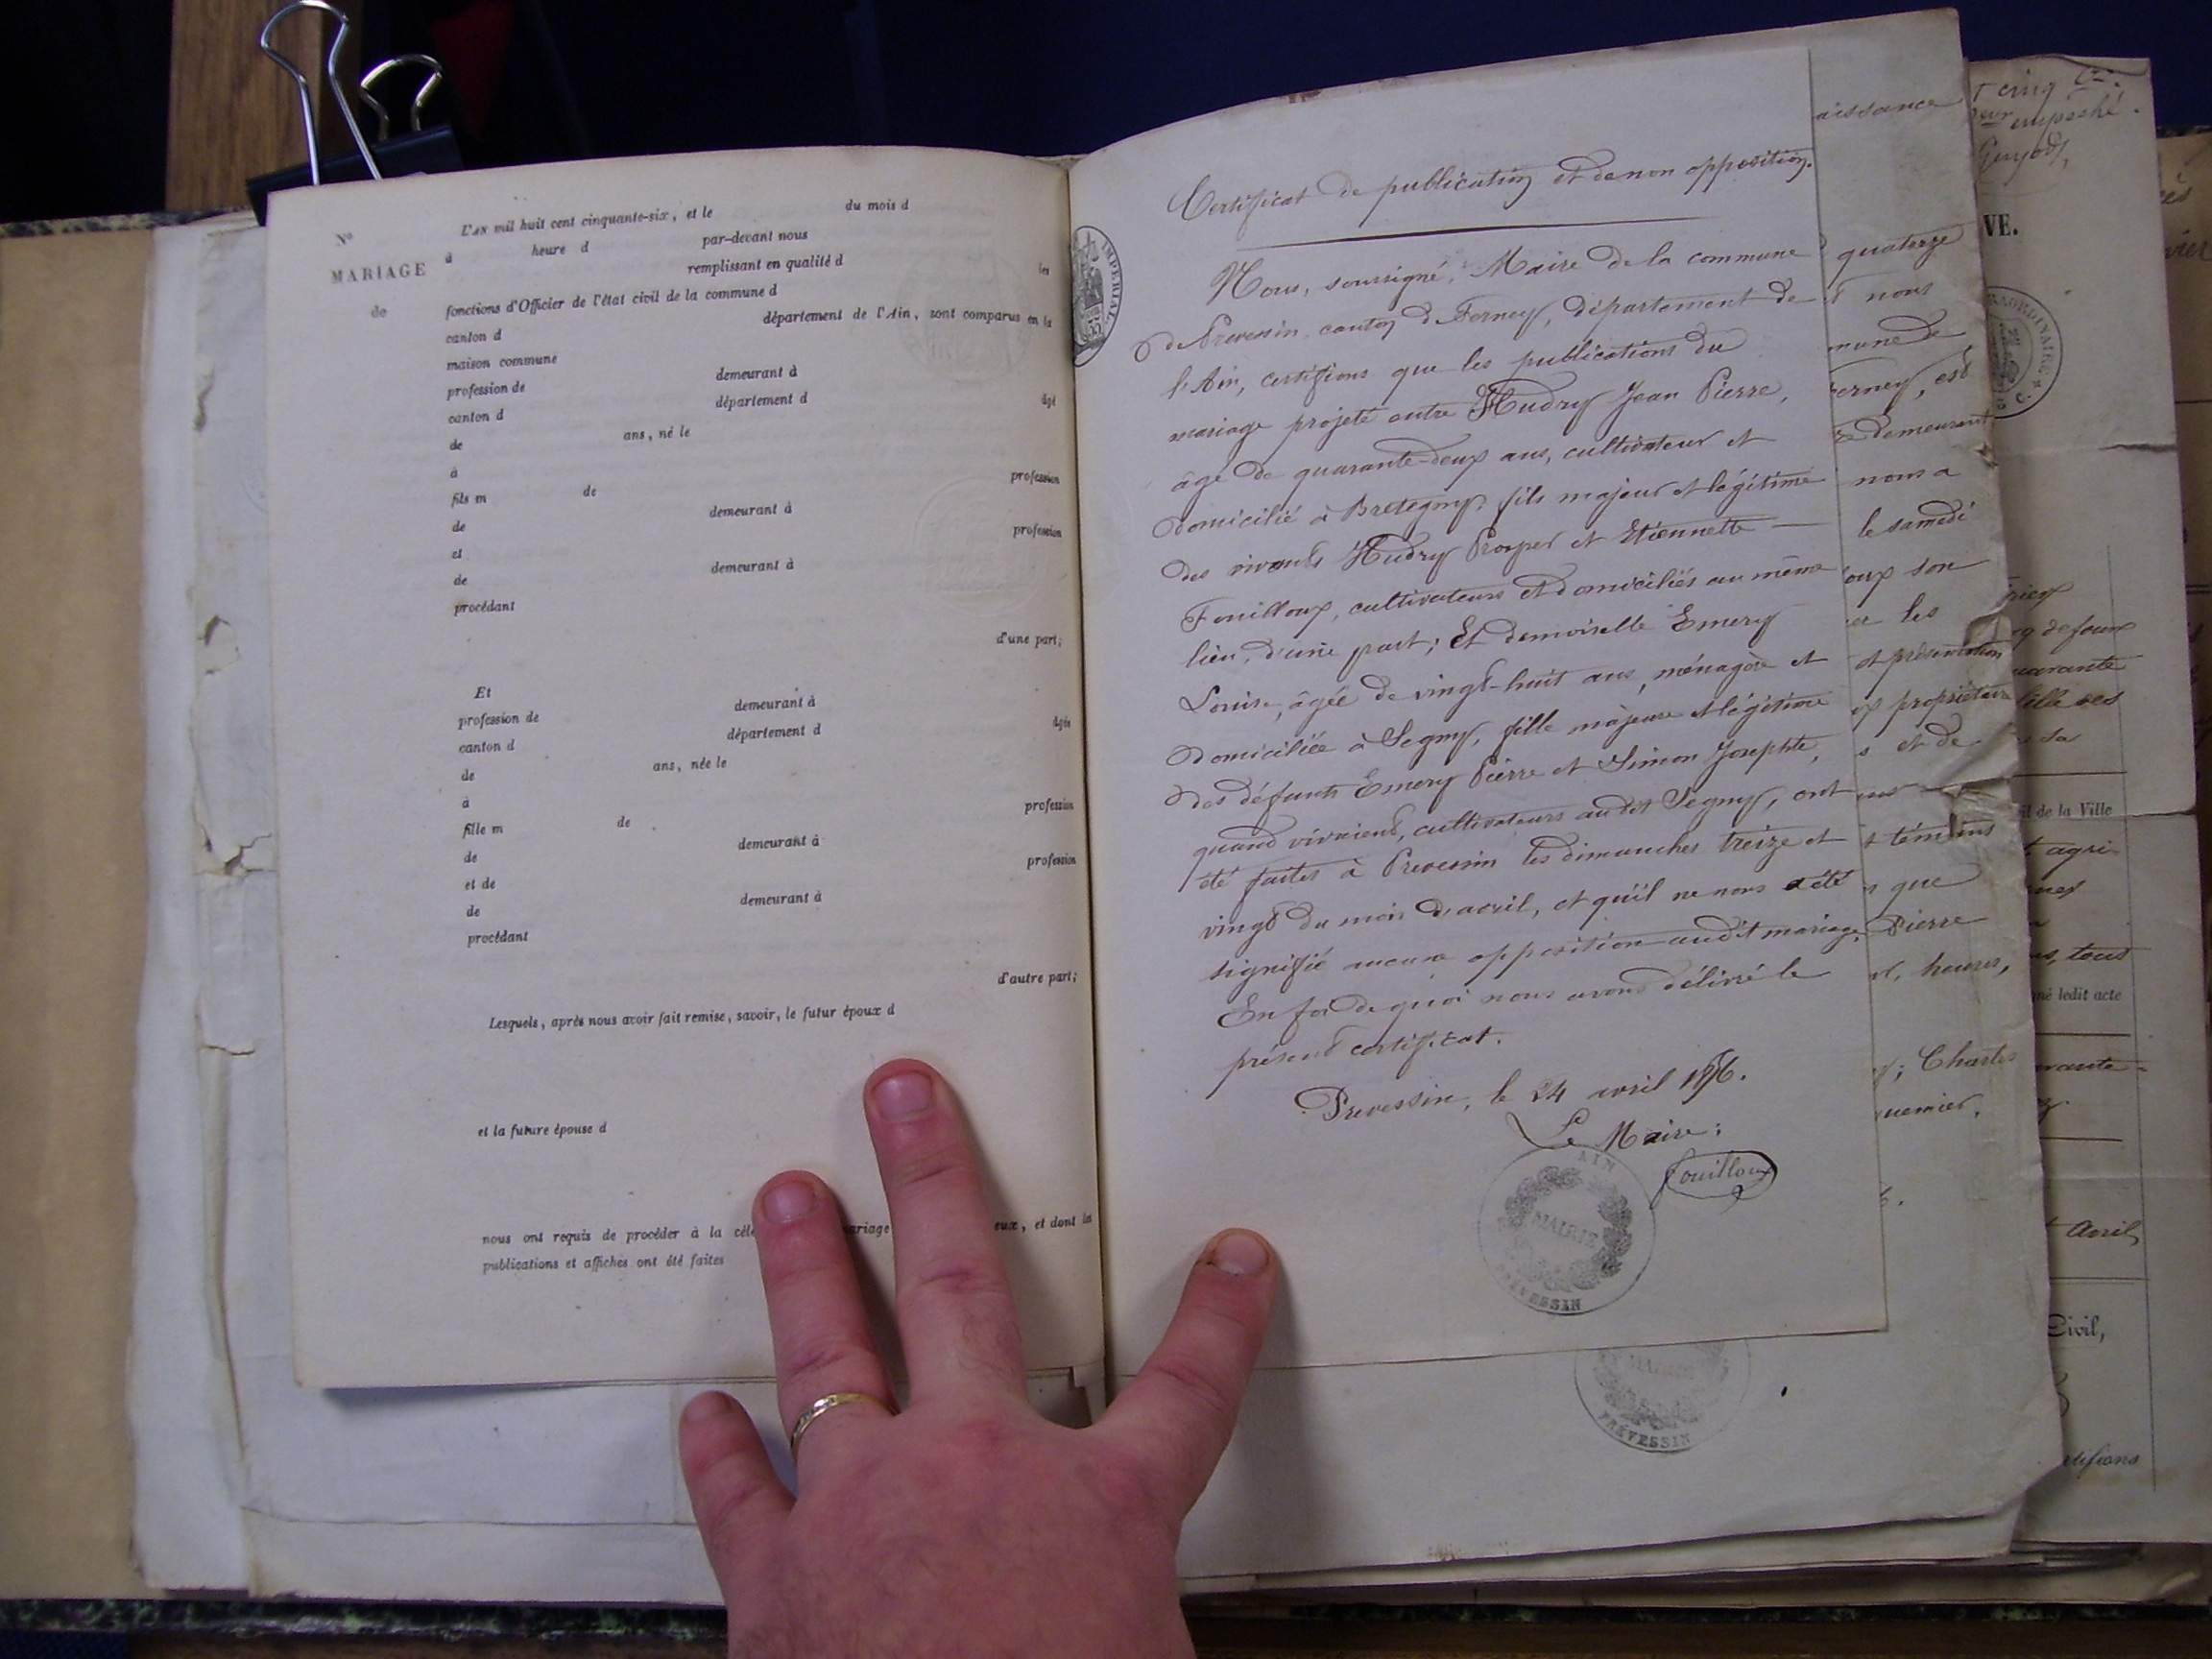 L'AN mil huit cent cinquante-six, et le du mois d
No
à heure d par-devant nous
MARIAGE
remplissant en qualité d les
de
fonctions d'Officier de l'état civil de la commune d
canton d département de l'Ain, sont comparus en la
maison commune
profession de demeurant à
canton d département d âgé
de ans, né le
à
fils m de profession
de demeurant à
et profession
de demeurant à
procédant
d'une part;
Et
profession de demeurant à
canton d département d âgée
de ans, née le
à
fille m de profession
de demeurant à
et de profession
de demeurant à
procédant
d'autre part;
Lesquels, après nous avoir fait remise, savoir, le futur époux d
et la future épouse d
nous ont requis de procéder à la célé ariage eux, et dont les
publications et affiches ont été faites
IMPERIAL
Certificat de publication et de non opposition.
Nous, soussigné, Maire de la commune
de Prevessin, canton d Ferney, département de
l'Ain, certifions que les publications du
mariage projeté entre Hudry Jean Pierre,
âgé de quarante-deux ans, cultivateur et
domicilié à Bretegny, fils majeur et légitime
des vivants Hudry Prosper et Etiennette —
Fouilloux, cultivateurs et domiciliés au même
lieu, d'une part; Et demoiselle Emery
Louise, âgée de vingt-huit ans, ménagère et
domiciliée à Segny, fille majeure et légitime
des défunts Emery Pierre et Simon Josephte,
quand vivaient, cultivateurs au dit Segny, ont
été faites à Prevessin les dimanches treize et
vingt du mois d'avril, et qu'il ne nous a été
signifié aucune opposition audit mariage.
En foi de quoi nous avons délivré le
présent certificat.
Prevessin, le 24 avril 1856.
Le Maire:
Fouilloux
AIN
MAIRIE
PREVESSIN
MAIRIE
PRÉVESSIN
aissance
quatorze
nous
mune de
Ferney, est
demeurant
nous a
le samedi
oux son
les
et présentation
propriétaire
s et de
témoins
que
Pierre
heures,
; Charles
t cinq
empêché.
VE.
RAORDINAIRE
de feux
uarante
fille des
sa
il de la Ville
agri-
s, tous
né ledit acte
rante-
Avril
Civil,
rtifions